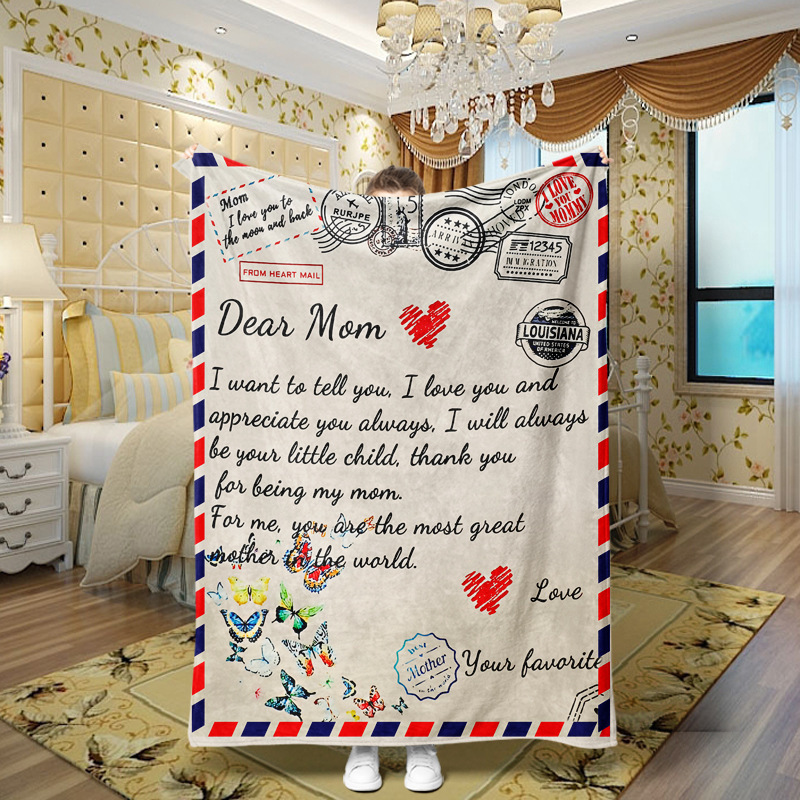 Mom
I love you to
the moon and back
RURJPE
15
ARRIVAL
LONDON
LODM
ZPX
I LOVE
YOU
MOMMY
12345
IMMIGRATION
FROM HEART MAIL
Dear Mom
WELCOME TO
LOUISIANA
UNITED STATES
OF AMERICA
I want to tell you, I love you and
appreciate you always, I will always
be your little child, thank you
for being my mom.
For me, you are the most great
mother in the world.
Love
BEST
Mother
in the world
Your favorite